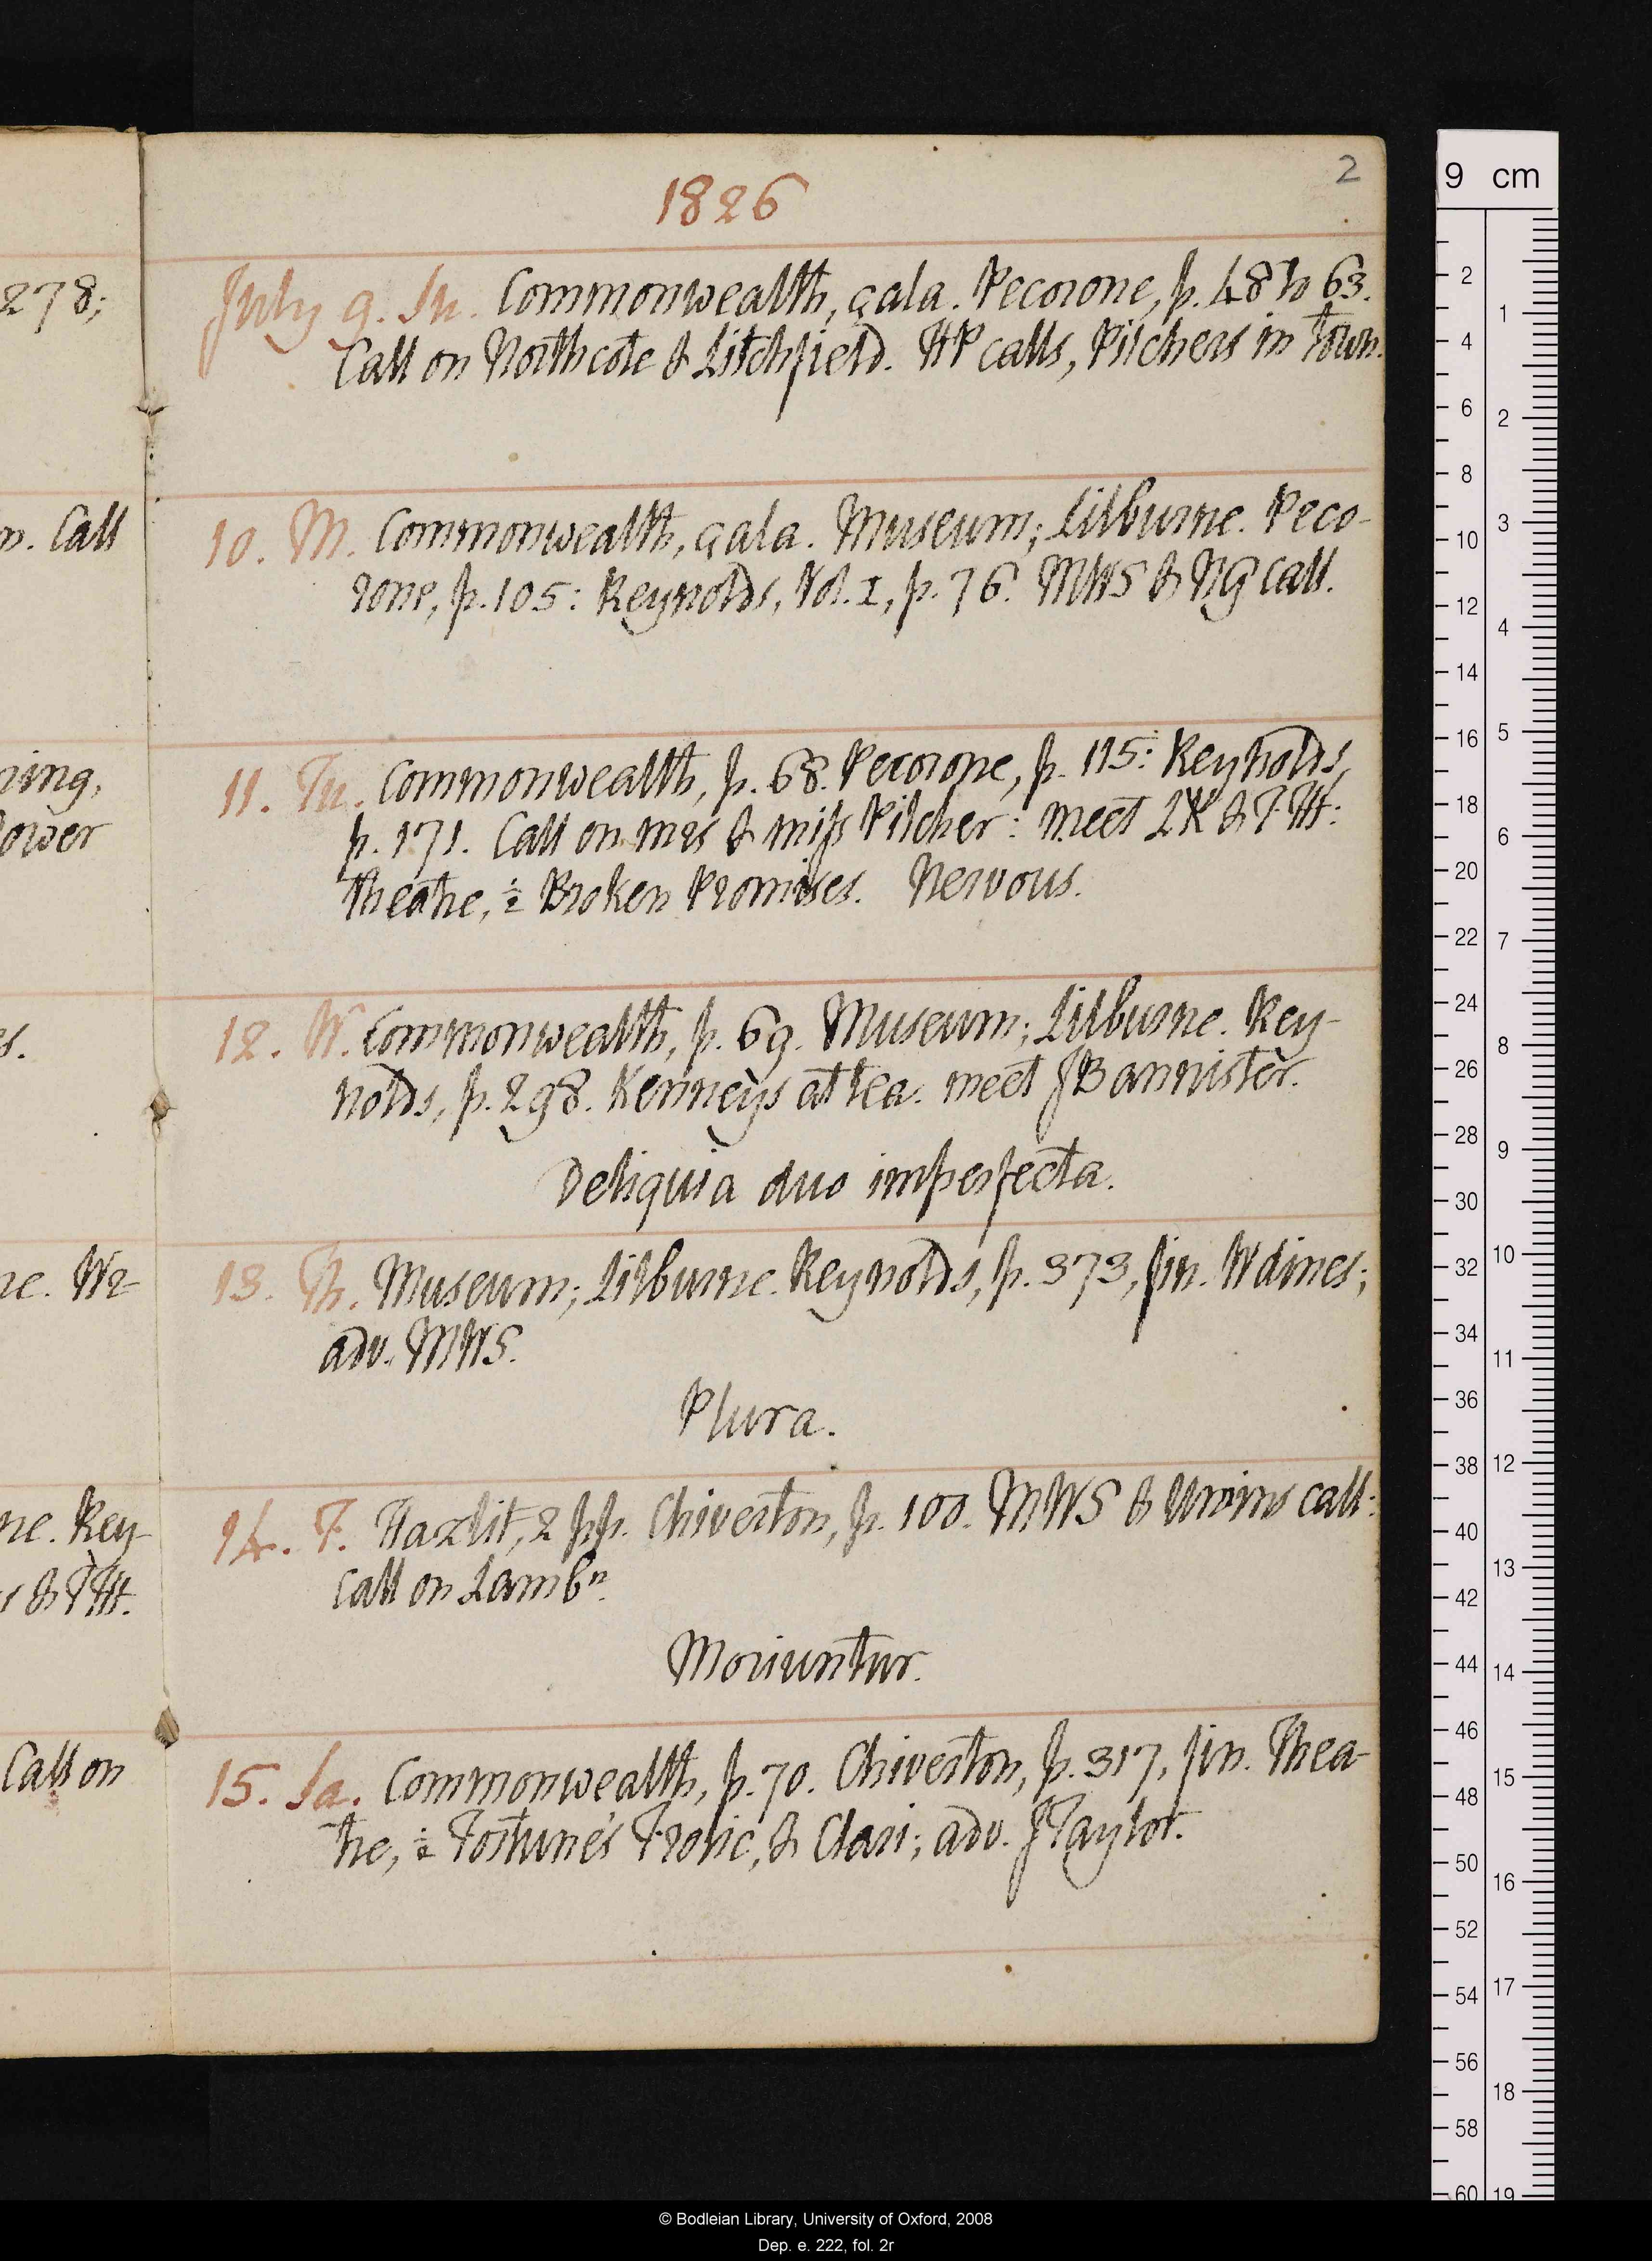 2
1826
278;
July 9. Su. Commonwealth, çala. Pecorone, p. 48 to 63.
Call on Northcote & Litchfield. HP calls, Pilchers in town.
n. Call
10. M. Commonwealth, çala. Museum; Lilburne. Peco-
rone, p. 105: Reynolds, Vol. I, p. 76. MWS & NG call.
ning,
ower
11. Tu. Commonwealth, p. 68. Pecorone, p. 115: Reynolds,
p. 171. Call on mrs & miss Pilcher: meet LK & TH:
theatre, ½ Broken Promises. Nervous.
s.
12. W. Commonwealth, p. 69. Museum; Lilburne. Rey-
nolds, p. 298. Kenneys at tea. meet JBannister.
Deliquia duo imperfecta.
ne. Wr-
13. Th. Museum; Lilburne. Reynolds, p. 373, fin. W dines;
adv. MWS.
Plura.
ne. Rey-
s & TH.
14. F. Hazlit, 2 pp. Chiverton, p. 100. MWS & Uwins call:
call on Lambn.
Moriuntur.
Call on
15. Sa. Commonwealth, p. 70. Chiverton, p. 317, fin. Thea-
tre, ½ Fortune's Frolic, & Clari; adv. JTaylor.
9 cm
2
4
6
8
10
12
14
16
18
20
22
24
26
28
30
32
34
36
38
40
42
44
46
48
50
52
54
56
58
60
1
2
3
4
5
6
7
8
9
10
11
12
13
14
15
16
17
18
19
© Bodleian Library, University of Oxford, 2008
Dep. e. 222, fol. 2r